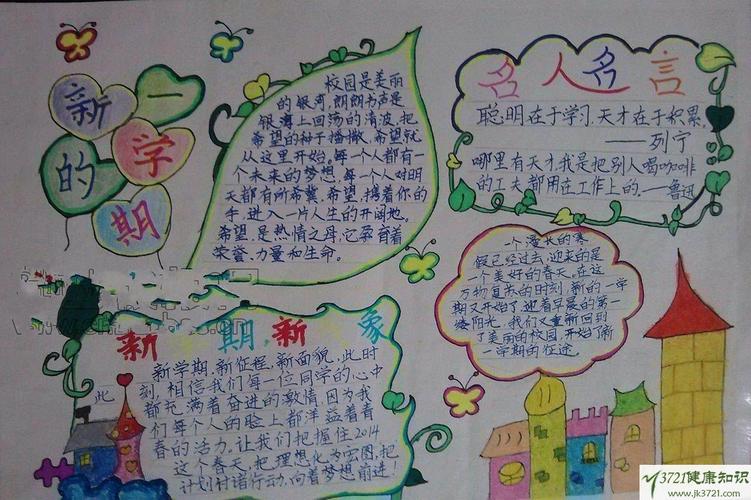 新一
的学
期
校园是美丽
的银河,朗朗书声是
银海上回荡的清波,把
希望的种子播撒,希望就
从这里开始。每一个人都有一
个未来的梦想,每一个人对明
天都有所希冀,希望,携着你的
手,进入一片人生的开阔地。
希望,是热情之母,它孕育着
荣誉、力量和生命。
名人名言
聪明在于学习,天才在于积累。
——列宁
哪里有天才,我是把别人喝咖啡
的工夫都用在工作上的。——鲁迅
一个漫长的寒
假已经过去,迎来的是
一个美好的春天。在这
万物复苏的时刻,新的一学
期又开始了,迎着早晨的第一
缕阳光,我们又重新回到
了美丽的校园,开始了新
一学期的征途。
新 期,新 象
新学期,新征程,新面貌,此时
此刻,相信我们每一位同学的心中
都充满着奋进的激情,因为我
们每个人的脸上都洋溢着青
春的活力。让我们把握住2014
这个春天,把理想化为宏图,把
计划付诸行动,向着梦想前进!
3721健康知识
www.jk3721.com